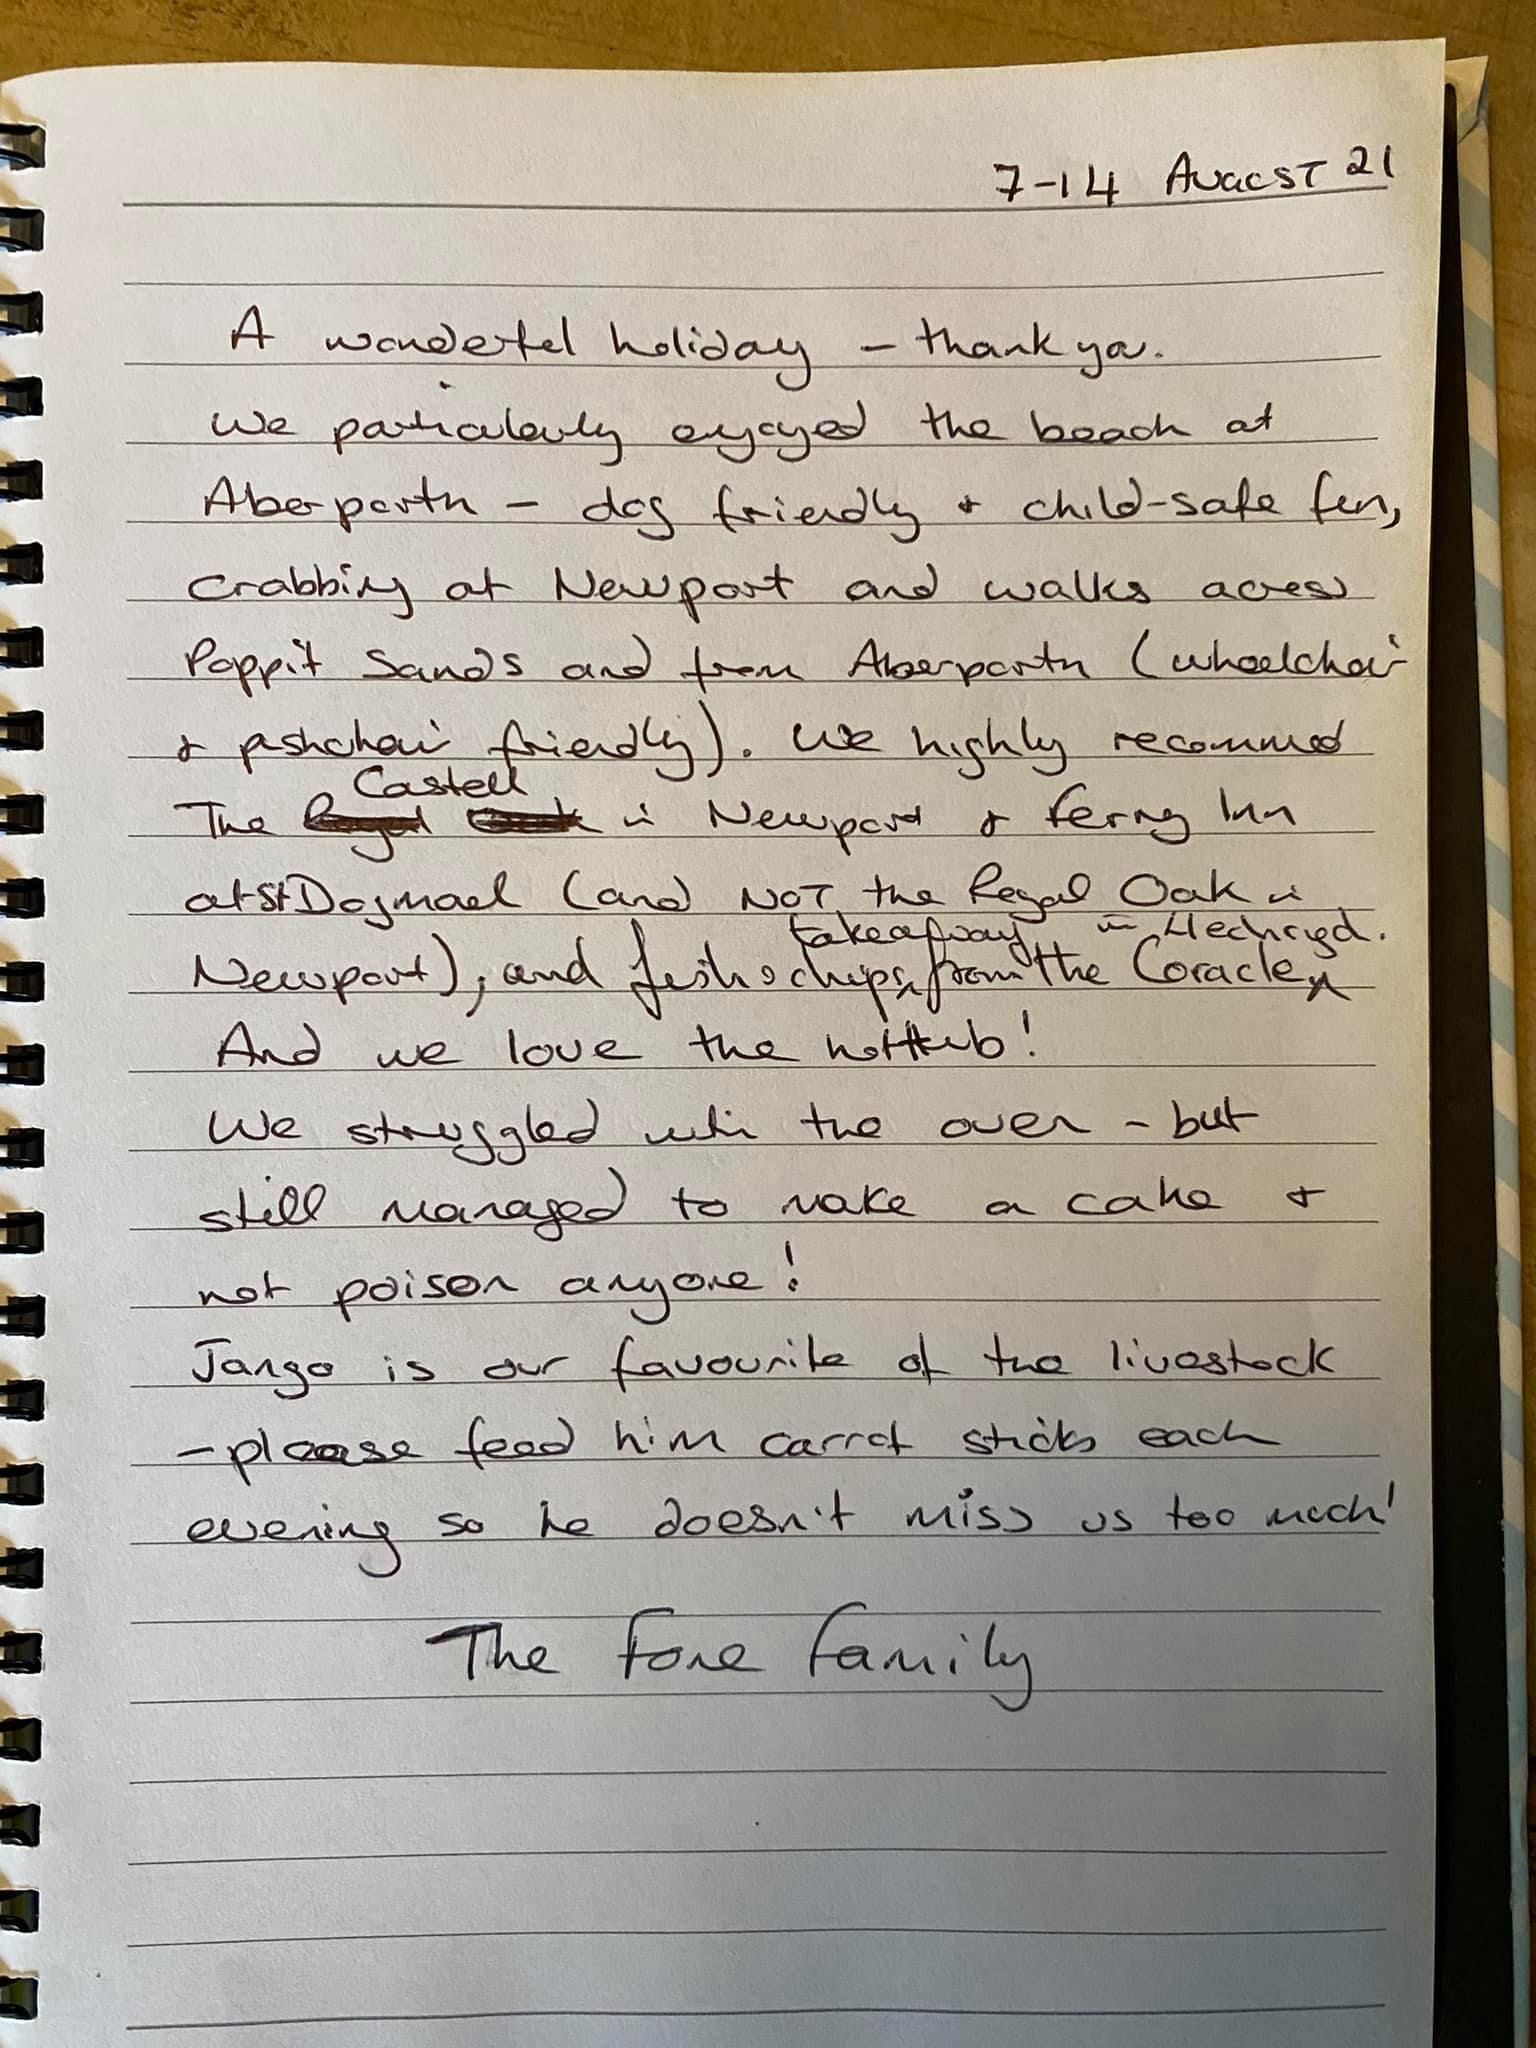 7-14 AUGUST 21
A wonderful holiday - thank you.
We particularly enjoyed the beach at
Aberporth - dog friendly & child-safe fun,
crabbing at Newport and walks across
Poppit Sands and from Aberporth (wheelchair
& pushchair friendly). We highly recommend
Castell
The Royal Oak in Newport & Ferry Inn
at St Dogmael (and NOT the Royal Oak in
takeaway in Llechryd.
Newport), and fish & chips from the Coracle
And we love the hottub!
We struggled with the oven - but
still managed to make a cake &
not poison anyone!
Jango is our favourite of the livestock
- please feed him carrot sticks each
evening so he doesn't miss us too much!
The Fone Family